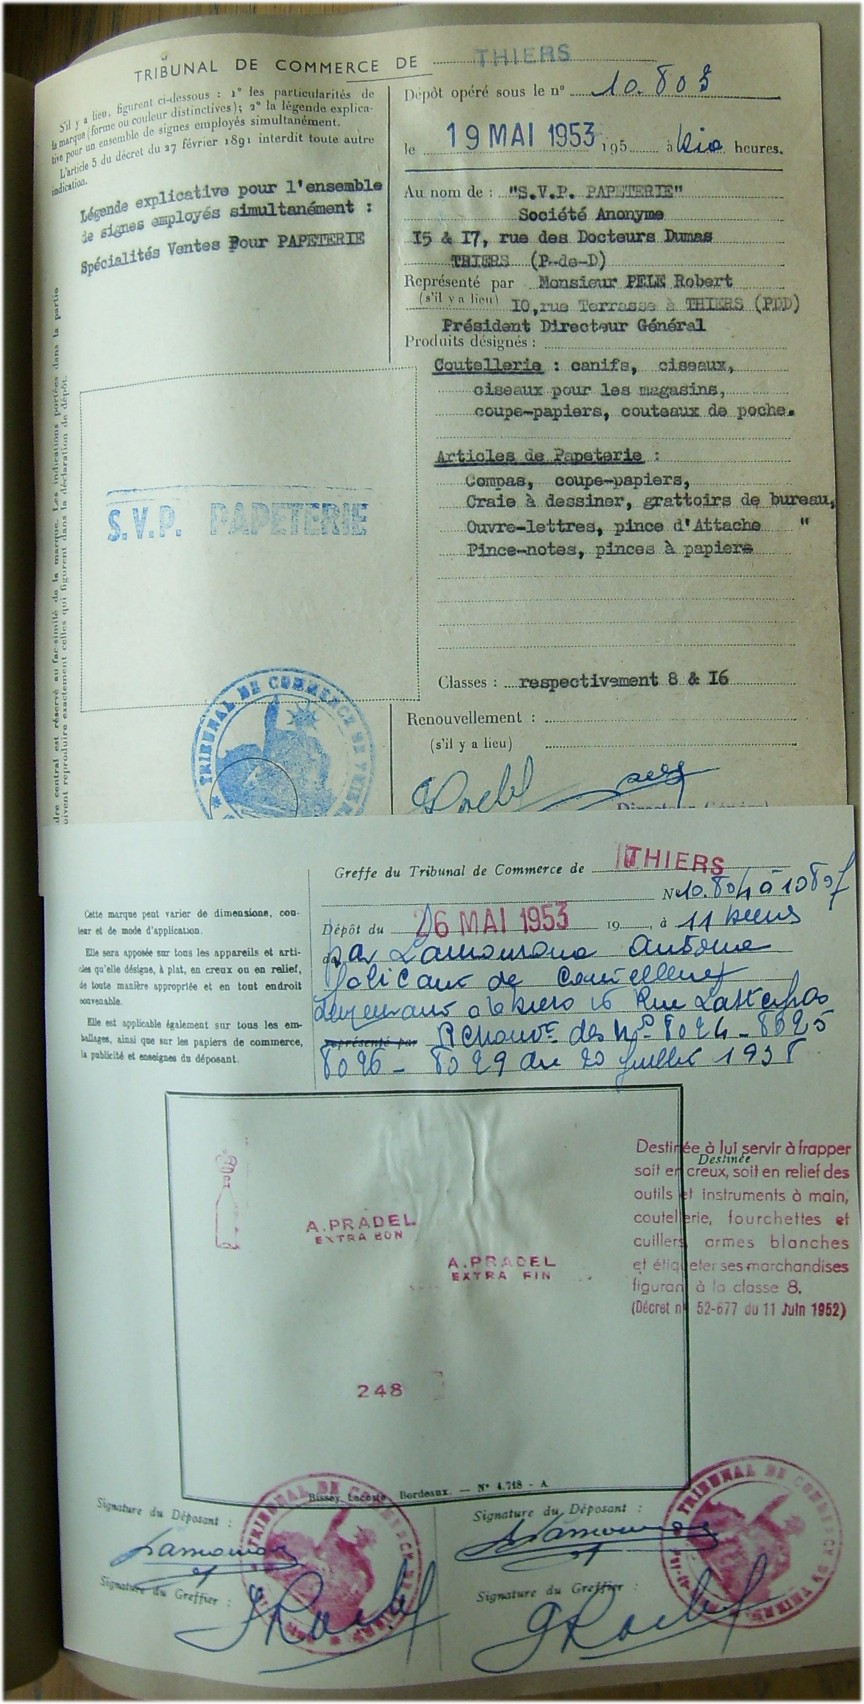 TRIBUNAL DE COMMERCE DE THIERS
S'il y a lieu, figurent ci-dessous : 1° les particularités de
la marque (forme ou couleur distinctives) ; 2° la légende explica-
tive pour un ensemble de signes employés simultanément.
L'article 5 du décret du 27 février 1891 interdit toute autre
indication.
Légende explicative pour l'ensemble
de signes employés simultanément :
Spécialités Ventes Pour PAPETERIE
Dépôt opéré sous le n° 10.803
le 19 MAI 1953 195 à heures.
Au nom de : "S.V.P. PAPETERIE"
Société Anonyme
15 & 17, rue des Docteurs Dumas
THIERS (P-de-D)
Représenté par Monsieur PELE Robert
(s'il y a lieu) 10,rue Terrasse à THIERS (PDD)
Président Directeur Général
Produits désignés :
Coutellerie : canifs, ciseaux,
ciseaux pour les magasins,
coupe-papiers, couteaux de poche.
Articles de Papeterie :
Compas, coupe-papiers,
Craie à dessiner, grattoirs de bureau,
Ouvre-lettres, pince d'Attache "
Pince-notes, pinces à papiers
Classes : respectivement 8 & 16
Renouvellement :
(s'il y a lieu)
dre central est réservé au fac-similé de la marque. Les indications portées dans la partie
oivent reproduire exactement celles qui figurent dans la déclaration de dépôt.
S.V.P. PAPETERIE
TRIBUNAL DE COMMERCE DE THIERS
Directeur Général
Greffe du Tribunal de Commerce de THIERS
N° 10.804 à 10807
Dépôt du 26 MAI 1953 19 , à 11 heures
par Lamouroux Antoine
fabricant de Coutellerie
demeurant à Thiers 16 Rue
représenté par Renouvt des Nos 8024 - 8025
8026 - 8029 du 20 Juillet 1938
Cette marque peut varier de dimension, cou-
leur et de mode d'application.
Elle sera apposée sur tous les appareils et arti-
cles qu'elle désigne, à plat, en creux ou en relief,
de toute manière appropriée et en tout endroit
convenable.
Elle est applicable également sur tous les em-
ballages, ainsi que sur les papiers de commerce,
la publicité et enseignes du déposant.
A. PRADEL
EXTRA BON
A. PRADEL
EXTRA FIN
248
Destinée
Destinée à lui servir à frapper
soit en creux, soit en relief des
outils et instruments à main,
coutellerie, fourchettes et
cuillers, armes blanches
et étiqueter ses marchandises
figurant à la classe 8.
(Décret n° 52-677 du 11 Juin 1952)
Bissey, Lacoste, Bordeaux. — N° 4.718 - A
Signature du Déposant :
Signature du Greffier :
Signature du Déposant :
Signature du Greffier :
TRIBUNAL DE COMMERCE DE THIERS
TRIBUNAL DE COMMERCE DE THIERS